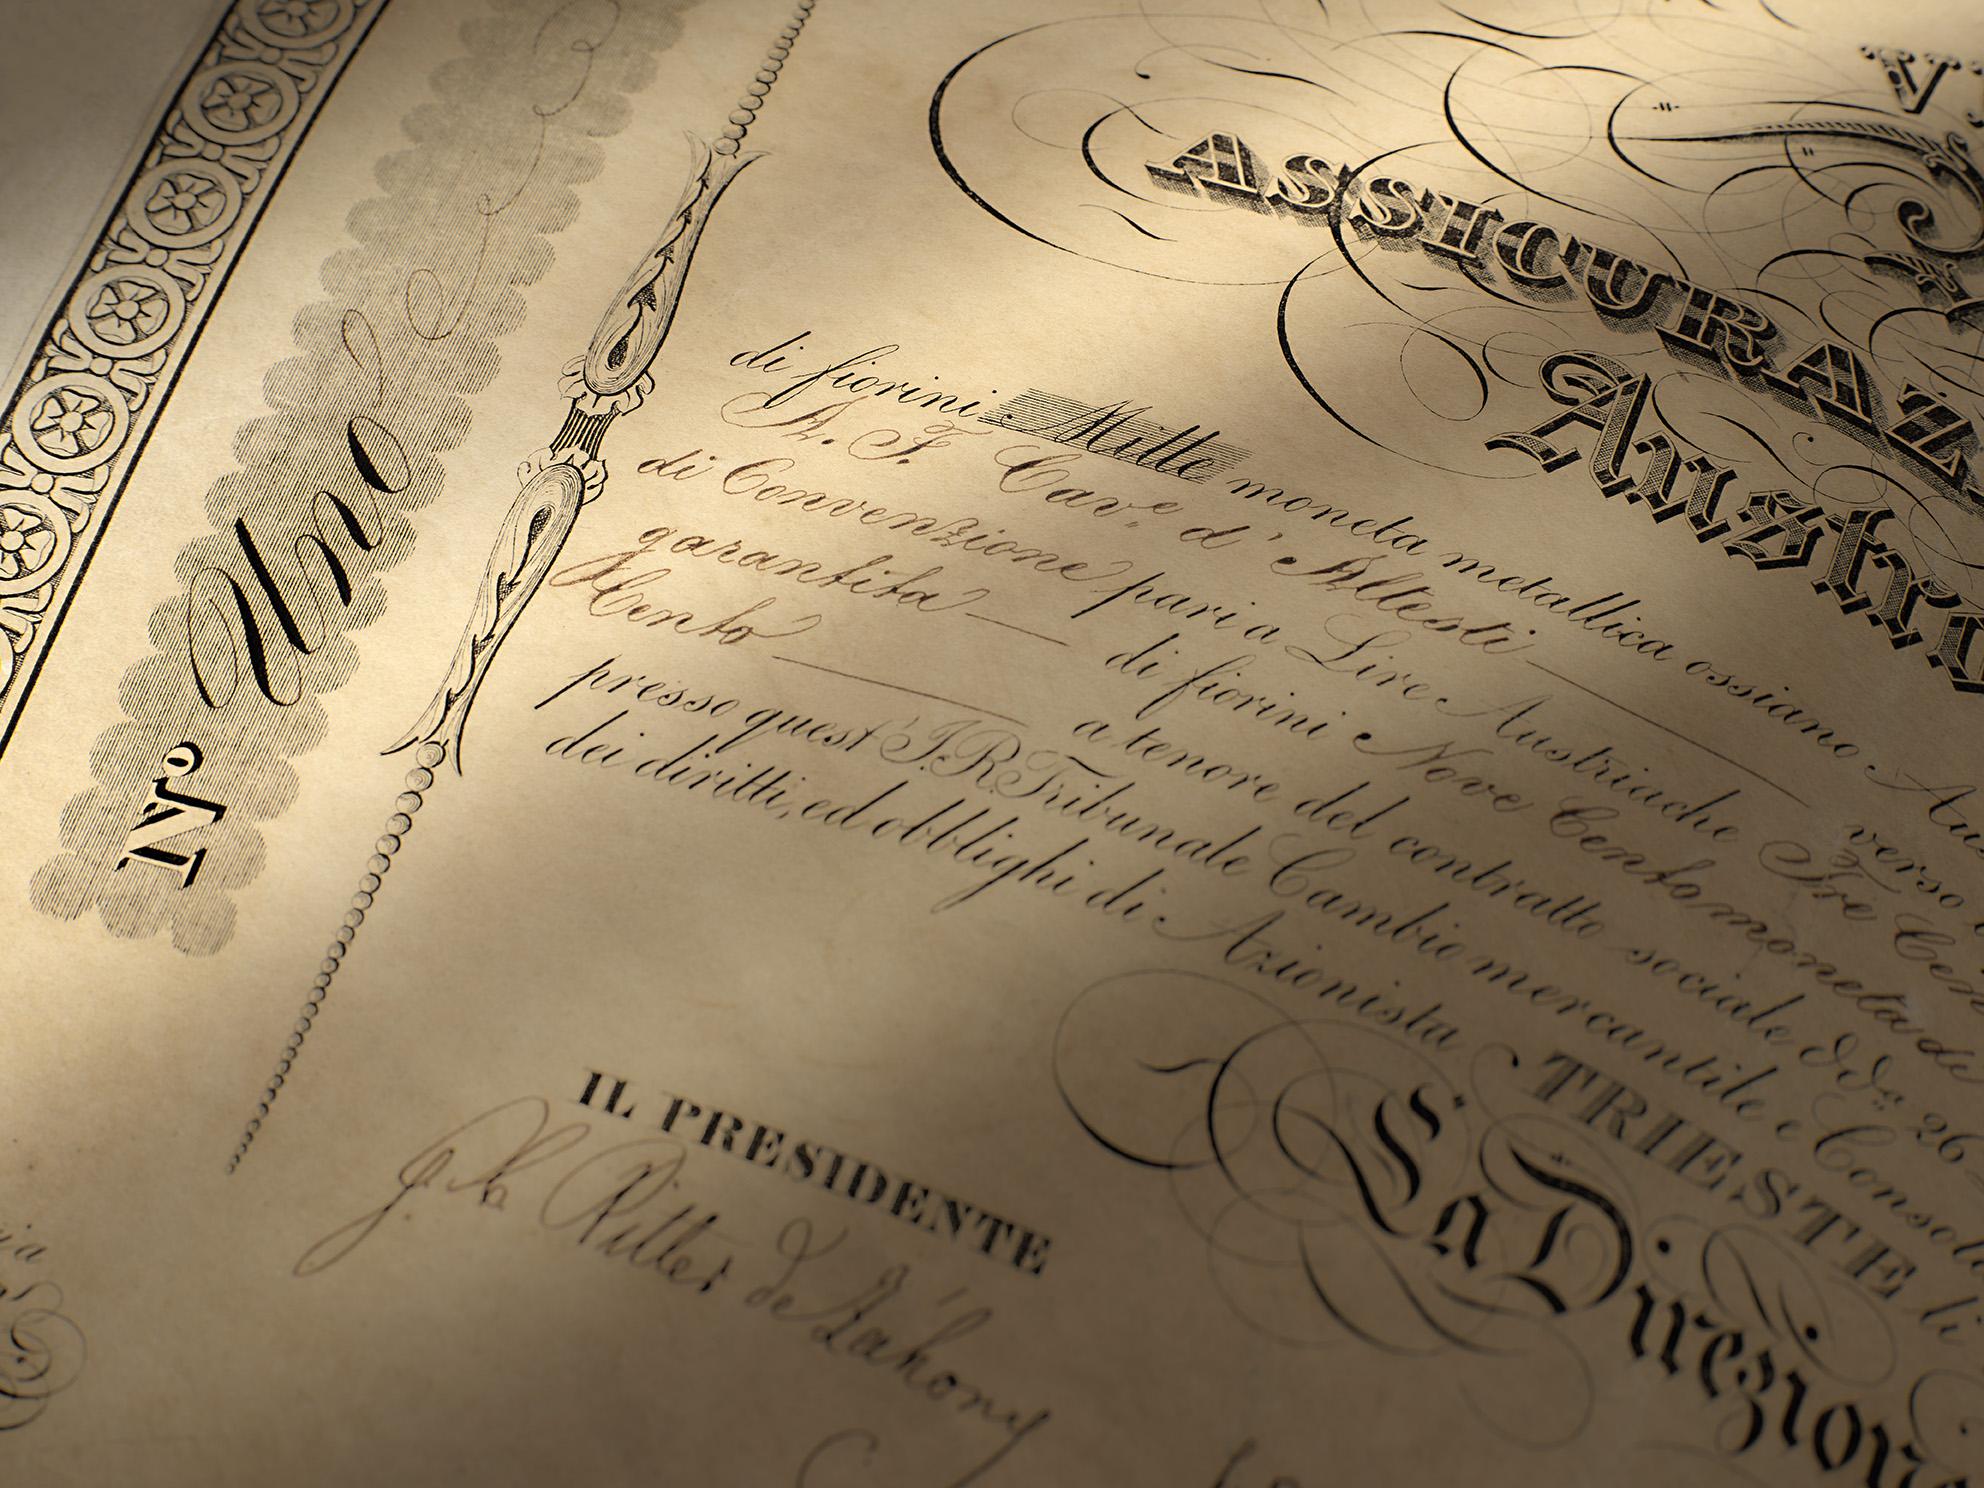 V
ASSICURAZ
Austro
N.º Uno
di fiorini Mille moneta metallica ossiano Au
A. F. Cav.e d' Altesti — verso
di Convenzione pari a Lire Austriache Tre Cen
garantita — di fiorini Nove Cento moneta di
Cento — a tenore del contratto sociale dd.a 26
presso quest' I. R. Tribunale Cambio mercantile e Consol
dei diritti, ed obblighi di Azionista
TRIESTE li
La Direzion
IL PRESIDENTE
Ritter de Záhony